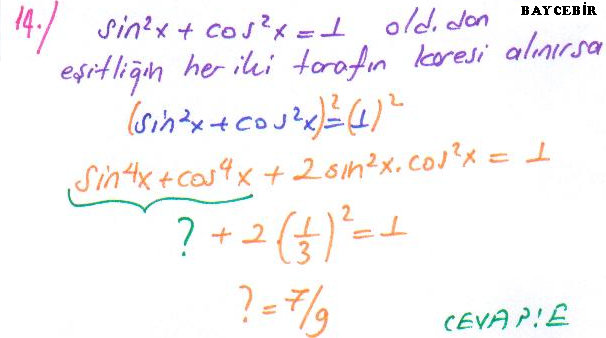 BAYCEBİR
14./ sin²x + cos²x = 1 old.dan
eşitliğin her iki tarafın karesi alınırsa
(sin²x + cos²x)² = (1)²
sin⁴x + cos⁴x + 2 sin²x . cos²x = 1
? + 2 (1/3)² = 1
? = 7/9
CEVAP: E